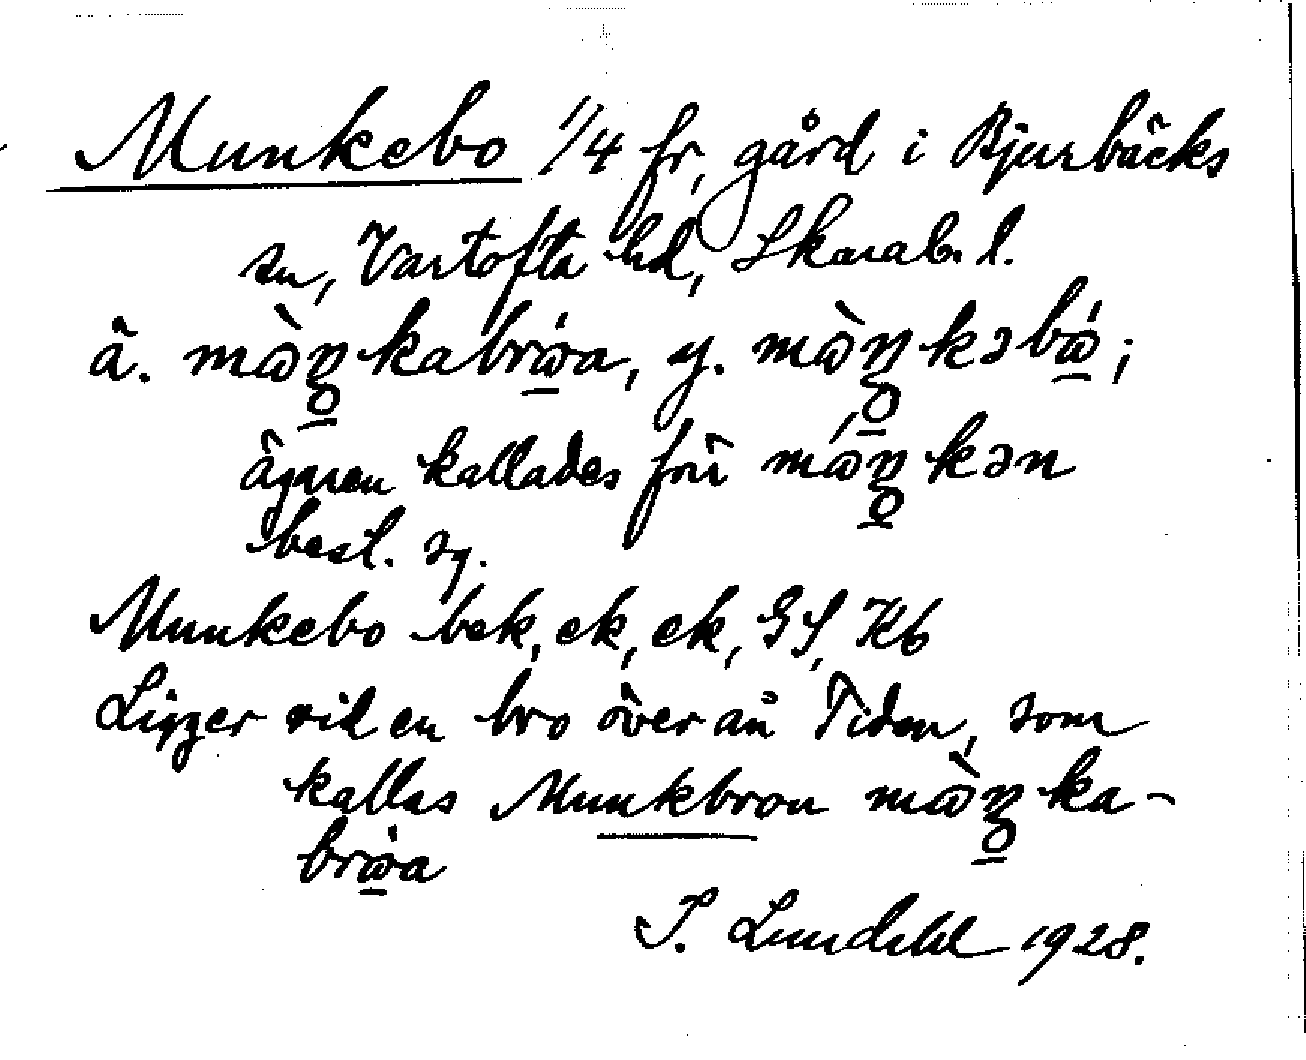 Munkebo 1/4 fr, gård i Bjurbäcks
sn, Vartofta hd, Skarab. l.
ä. mὼŋkabrώa, y. mὼŋkəbώ;
ägaren kallades förr mώŋkən
best. sg.
Munkebo bek, ek, ek, GS, Kb
Ligger vid en bro över ån Tidan, som
kallas Munkbron mὼŋka-
brώa
I. Lundahl 1928.